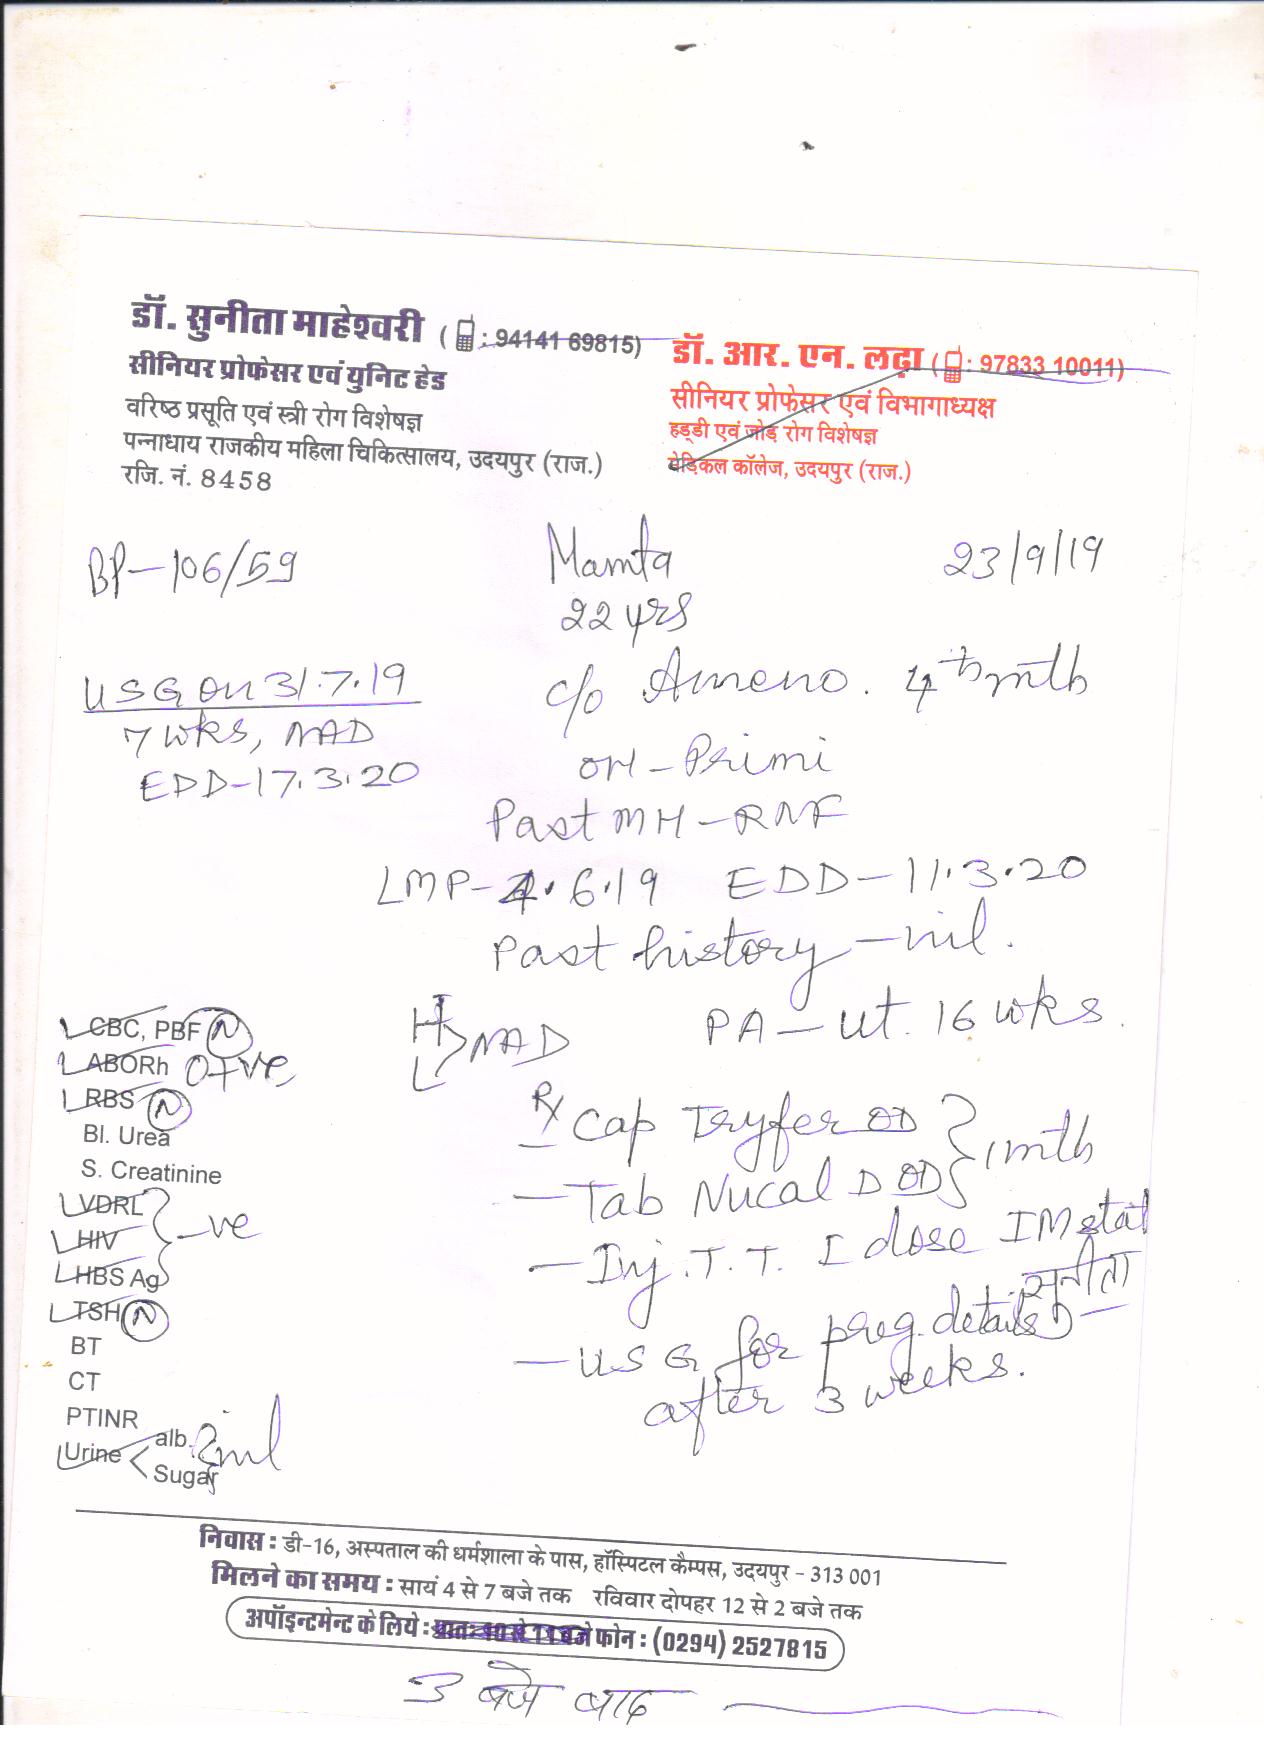 डॉ. सुनीता माहेश्वरी ( : 94141 69815)
सीनियर प्रोफेसर एवं युनिट हेड
वरिष्ठ प्रसूति एवं स्त्री रोग विशेषज्ञ
पन्नाधाय राजकीय महिला चिकित्सालय, उदयपुर (राज.)
रजि. नं. 8458
डॉ. आर. एन. लढ़ा ( : 97833 10011)
सीनियर प्रोफेसर एवं विभागाध्यक्ष
हड्डी एवं जोड़ रोग विशेषज्ञ
मेडिकल कॉलेज, उदयपुर (राज.)
BP-106/59
Mamta
22 yrs
23/9/19
USG on 31.7.19
7 wks, NAD
EDD-17.3.20
c/o Ameno. 4th mth
OH - Primi
Past MH - RNF
LMP- 4.6.19 EDD - 11.3.20
Past history - nil.
H
L > NAD
PA - ut. 16 wks.
CBC, PBF N
ABORh O+ve
RBS N
Bl. Urea
S. Creatinine
VDRL
HIV } -ve
HBS Ag
TSH N
BT
CT
PTINR
Urine < alb.
Sugar } nil
Rx Cap Tryfer OD
- Tab Nucal D OD } 1 mth
- Inj. T.T. I dose IM stat
सुनीता
- USG for preg. details
after 3 weeks.
निवास : डी-16, अस्पताल की धर्मशाला के पास, हॉस्पिटल कैम्पस, उदयपुर - 313 001
मिलने का समय : सायं 4 से 7 बजे तक रविवार दोपहर 12 से 2 बजे तक
अपॉइन्टमेन्ट के लिये : प्रातः 10 से 11 बजे फोन : (0294) 2527815
3 बजे बाद